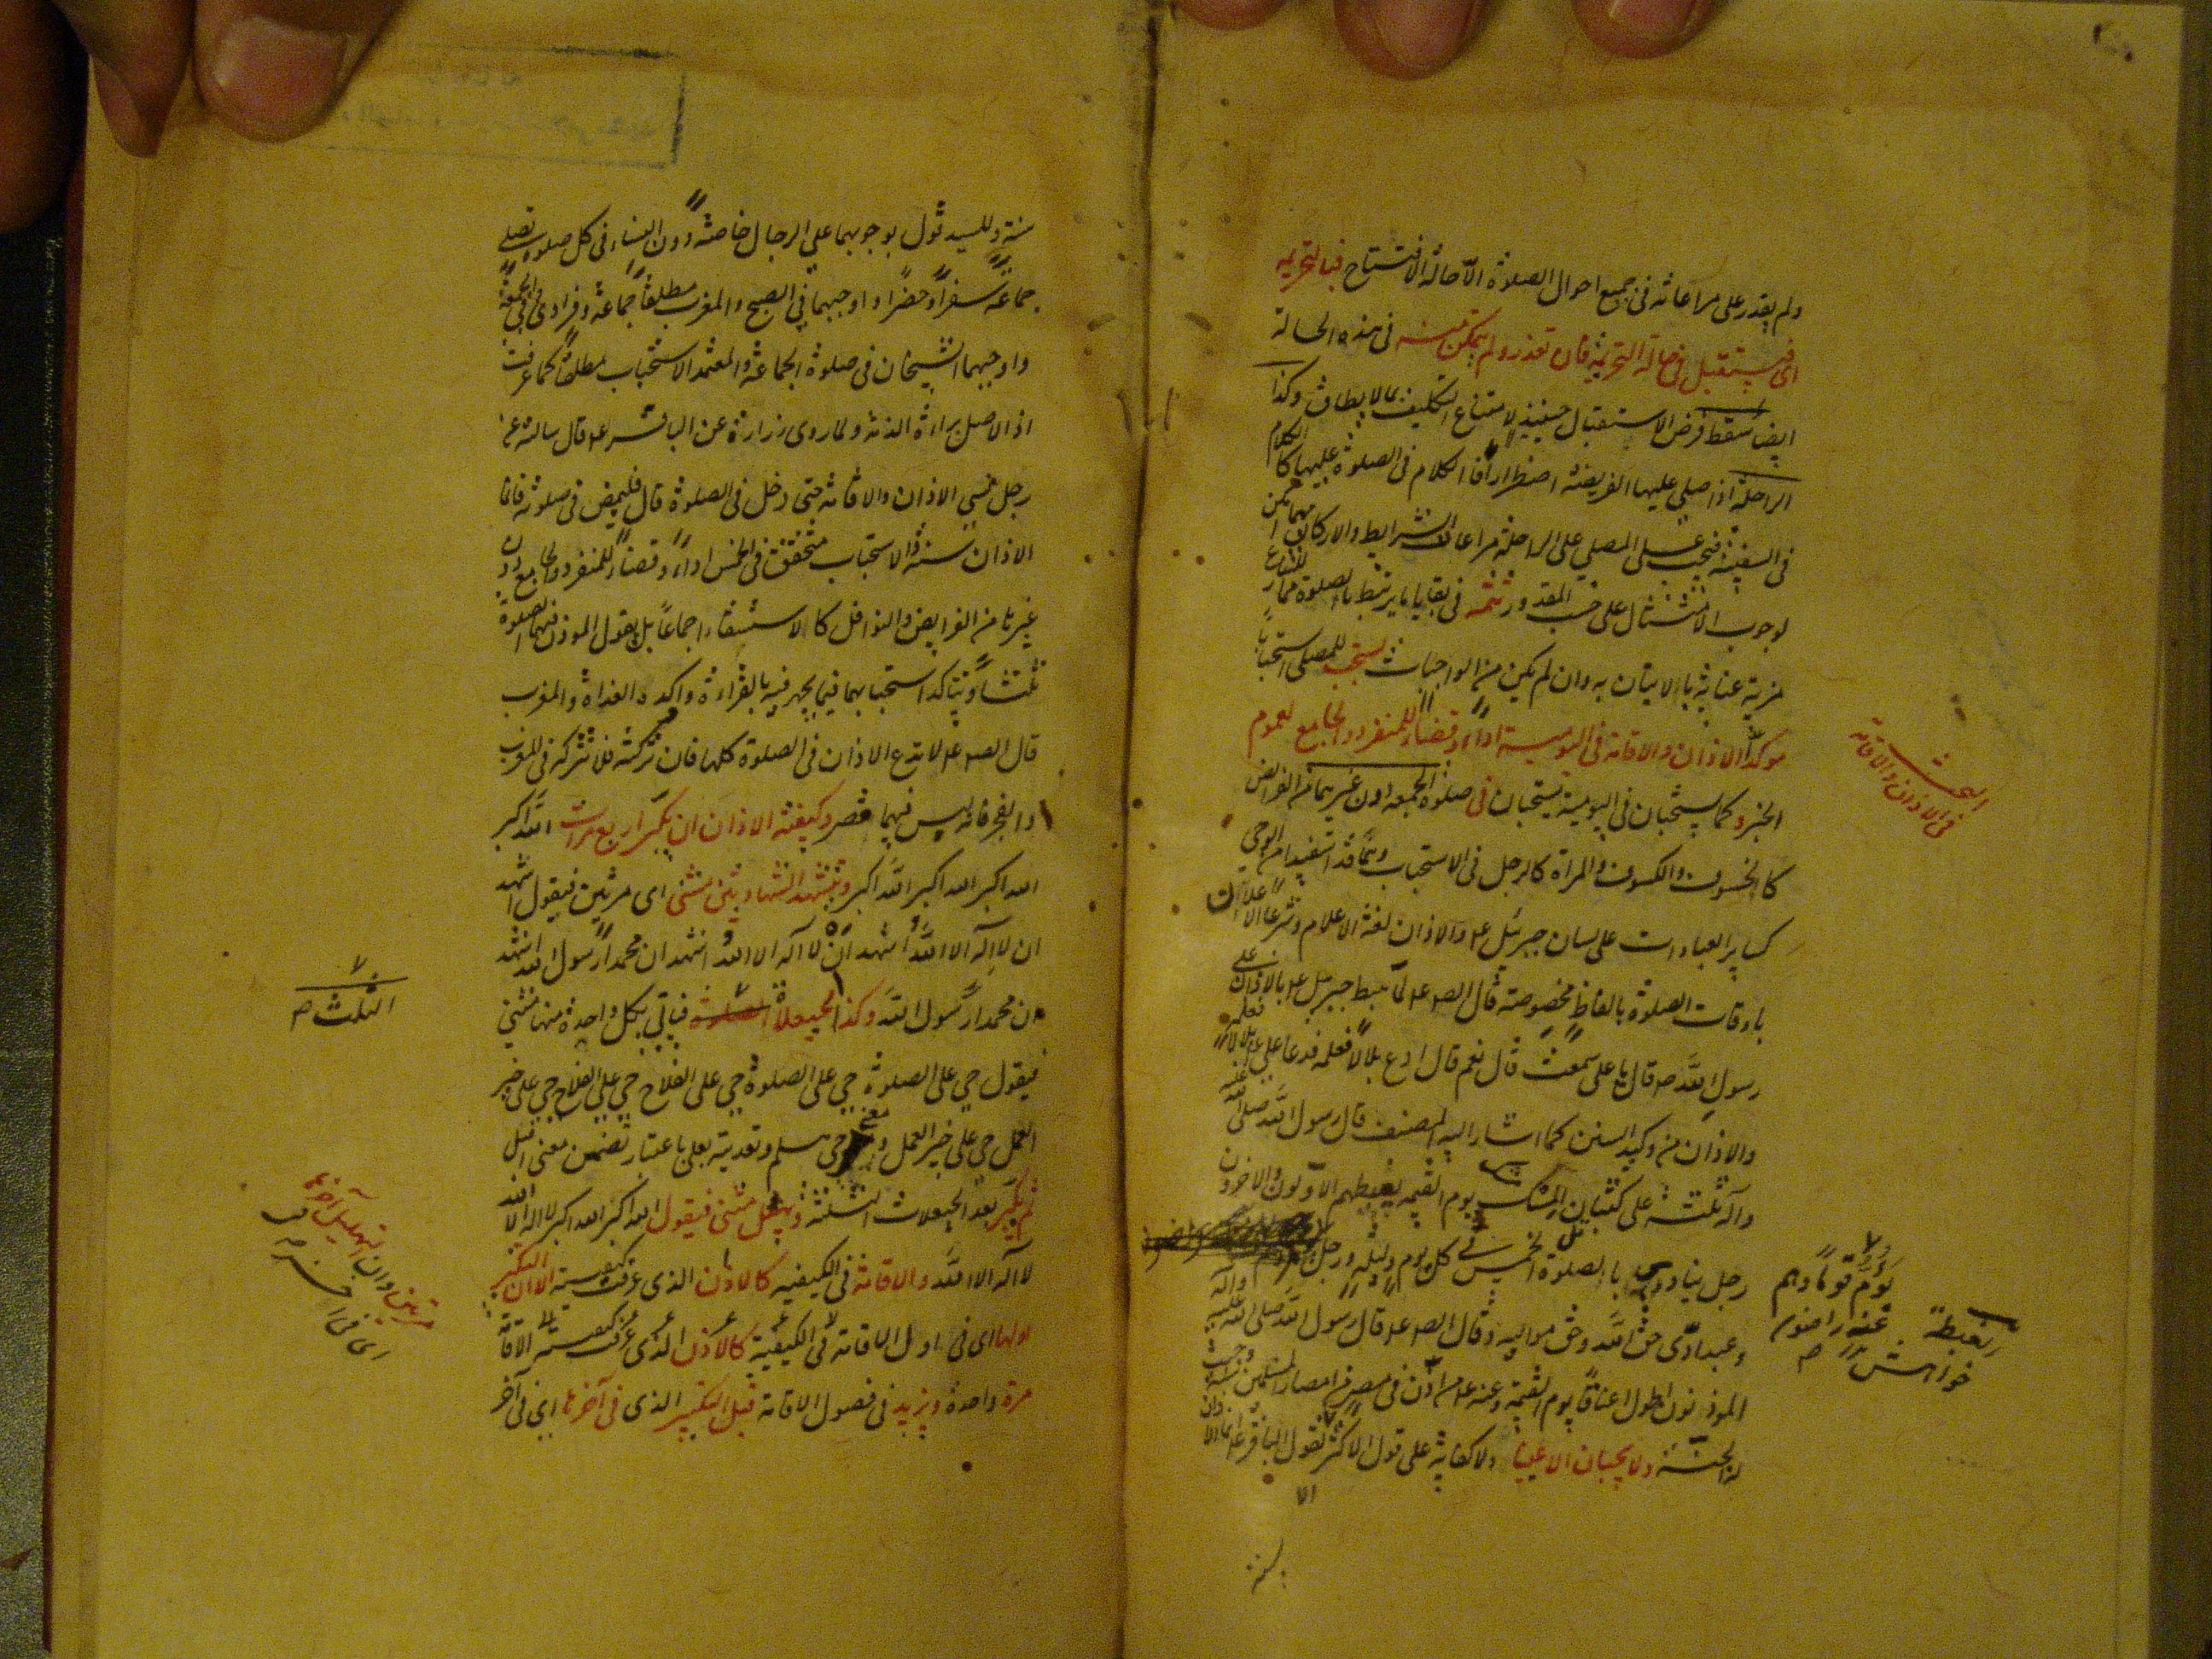 ولم يقدر على مراعاته فى جميع احوال الصلوة الا حالة الافتتاح فبالتحريمه
اى يستقبل فى حالة التحريمة فان تعذر ولم يتمكن منه فى هذه الحالة
ايضا سقط فرض الاستقبال حينئذ لامتناع التكليف بما لا يطاق وكذا
الراحلة اذا صلى عليها الفريضة اضطرارا فالكلام فى الصلوة عليها كالكلام
فى السفينة فيجب على المصلى على الراحلة مراعاة الشرايط والاركان مهما امكن
لوجوب الامتثال على حسب المقدور تتمه فى بقايا ما يرتبط بالصلوة مما للشارع
مزية عناية بالاتيان به وان لم يكن من الواجبات يستحب للمصلى استحبابا
موكدا الاذان والاقامة فى اليومية اداء وقضاء للمنفرد والجامع لعموم
الخبر وكما يستحبان فى اليومية يستحبان فى صلوة الجمعه دون غيرهما من الفرائض
كالخسوف والكسوف والمراة كالرجل فى الاستحباب وهما قد استفيدا من الوحى
كساير العبادات على لسان جبرئيل ع والاذان لغة الاعلام وشرعا الاعلان
باوقات الصلوة بالفاظ مخصوصة قال الص ع لما هبط جبرئيل ع بالاذان على
رسول الله ص قال يا على سمعت قال نعم قال ادع بلالا فعلمه فدعا على ع بلالا فعلمه
والاذان من وكيد السنن كما اشار اليه المصنف قال رسول الله صلى الله عليه
وآله ثلثة على كثبان المسك يوم القيمه يغبطهم الاولون والاخرون
رجل ينادى بالصلوة الخمس فى كل يوم وليلة ورجل
وعبد ادى حق الله وحق مواليه وقال الص ع قال رسول الله صلى الله عليه وآله
الموذنون اطول اعناقا يوم القيمة وعنه ع من اذن فى مصر من امصار المسلمين سنة وجبت
له الجنة ولا يجبان لا عينا ولا كفاية على قول الاكثر لقول الباقر ع انما الاذان
سنة
البحث
فى الاذان والاقامة
يؤم قوما وهم
عنه راضون
يغبطة
سنة وللسيد قول بوجوبهما على الرجال خاصة دون النساء فى كل صلوة تصلى
جماعة سفرا وحضرا واوجبهما فى الصبح والمغرب مطلقا جماعة وفرادى وفى الجمعة
واوجبهما الشيخان فى صلوة الجماعة والمعتمد الاستحباب مطلقا كما عرفت
اذ الاصل براءة الذمة ولما روى زرارة عن الباقر ع قال سالته عن
رجل نسى الاذان والاقامة حتى دخل فى الصلوة قال فليمض فى صلوته فانما
الاذان سنة والاستحباب متحقق فى الخمس اداء وقضاء للمنفرد والجامع دون
غيرها من الفرايض والنوافل كالاستسقاء اجماعا بل يقول الموذن فيهما الصلوة
ثلثا ويتاكد استحبابهما فيما يجهر فيه بالقراءة واكده الغداة والمغرب
قال الص ع لا تدع الاذان فى الصلوة كلها فان تركته فلا تتركه فى المغرب
والفجر فانه ليس فيهما قصر وكيفية الاذان ان يكبر اربع مرات الله اكبر
الله اكبر الله اكبر الله اكبر ويتشهد الشهادتين مثنى اى مرتين فيقول اشهد
ان لا اله الا الله اشهد ان لا اله الا الله اشهد ان محمدا رسول الله اشهد
ان محمدا رسول الله وكذا الحيعلات فياتى بكل واحدة منها مثنى
فيقول حى على الصلوة حى على الصلوة حى على الفلاح حى على الفلاح حى على خير
العمل حى على خير العمل ومعنى حى هلم وتعديته بعلى باعتبار تضمن معنى اقبل
ثم يكبر بعد الحيعلات الثلثة ويهلل مثنى فيقول الله اكبر الله اكبر لا اله الا الله
لا اله الا الله والاقامة فى الكيفيه كالاذان الذى عرفت كيفيته الا ان التكبير
اولها اى فى اول الاقامة فى الكيفية كالاذان الذى عرفت كيفيته
مرة واحدة ويزيد فى فصول الاقامة قبل التكبير الذى فى آخرها اى فى آخر
الثلث ص
مرتين وان التهليل آخرها